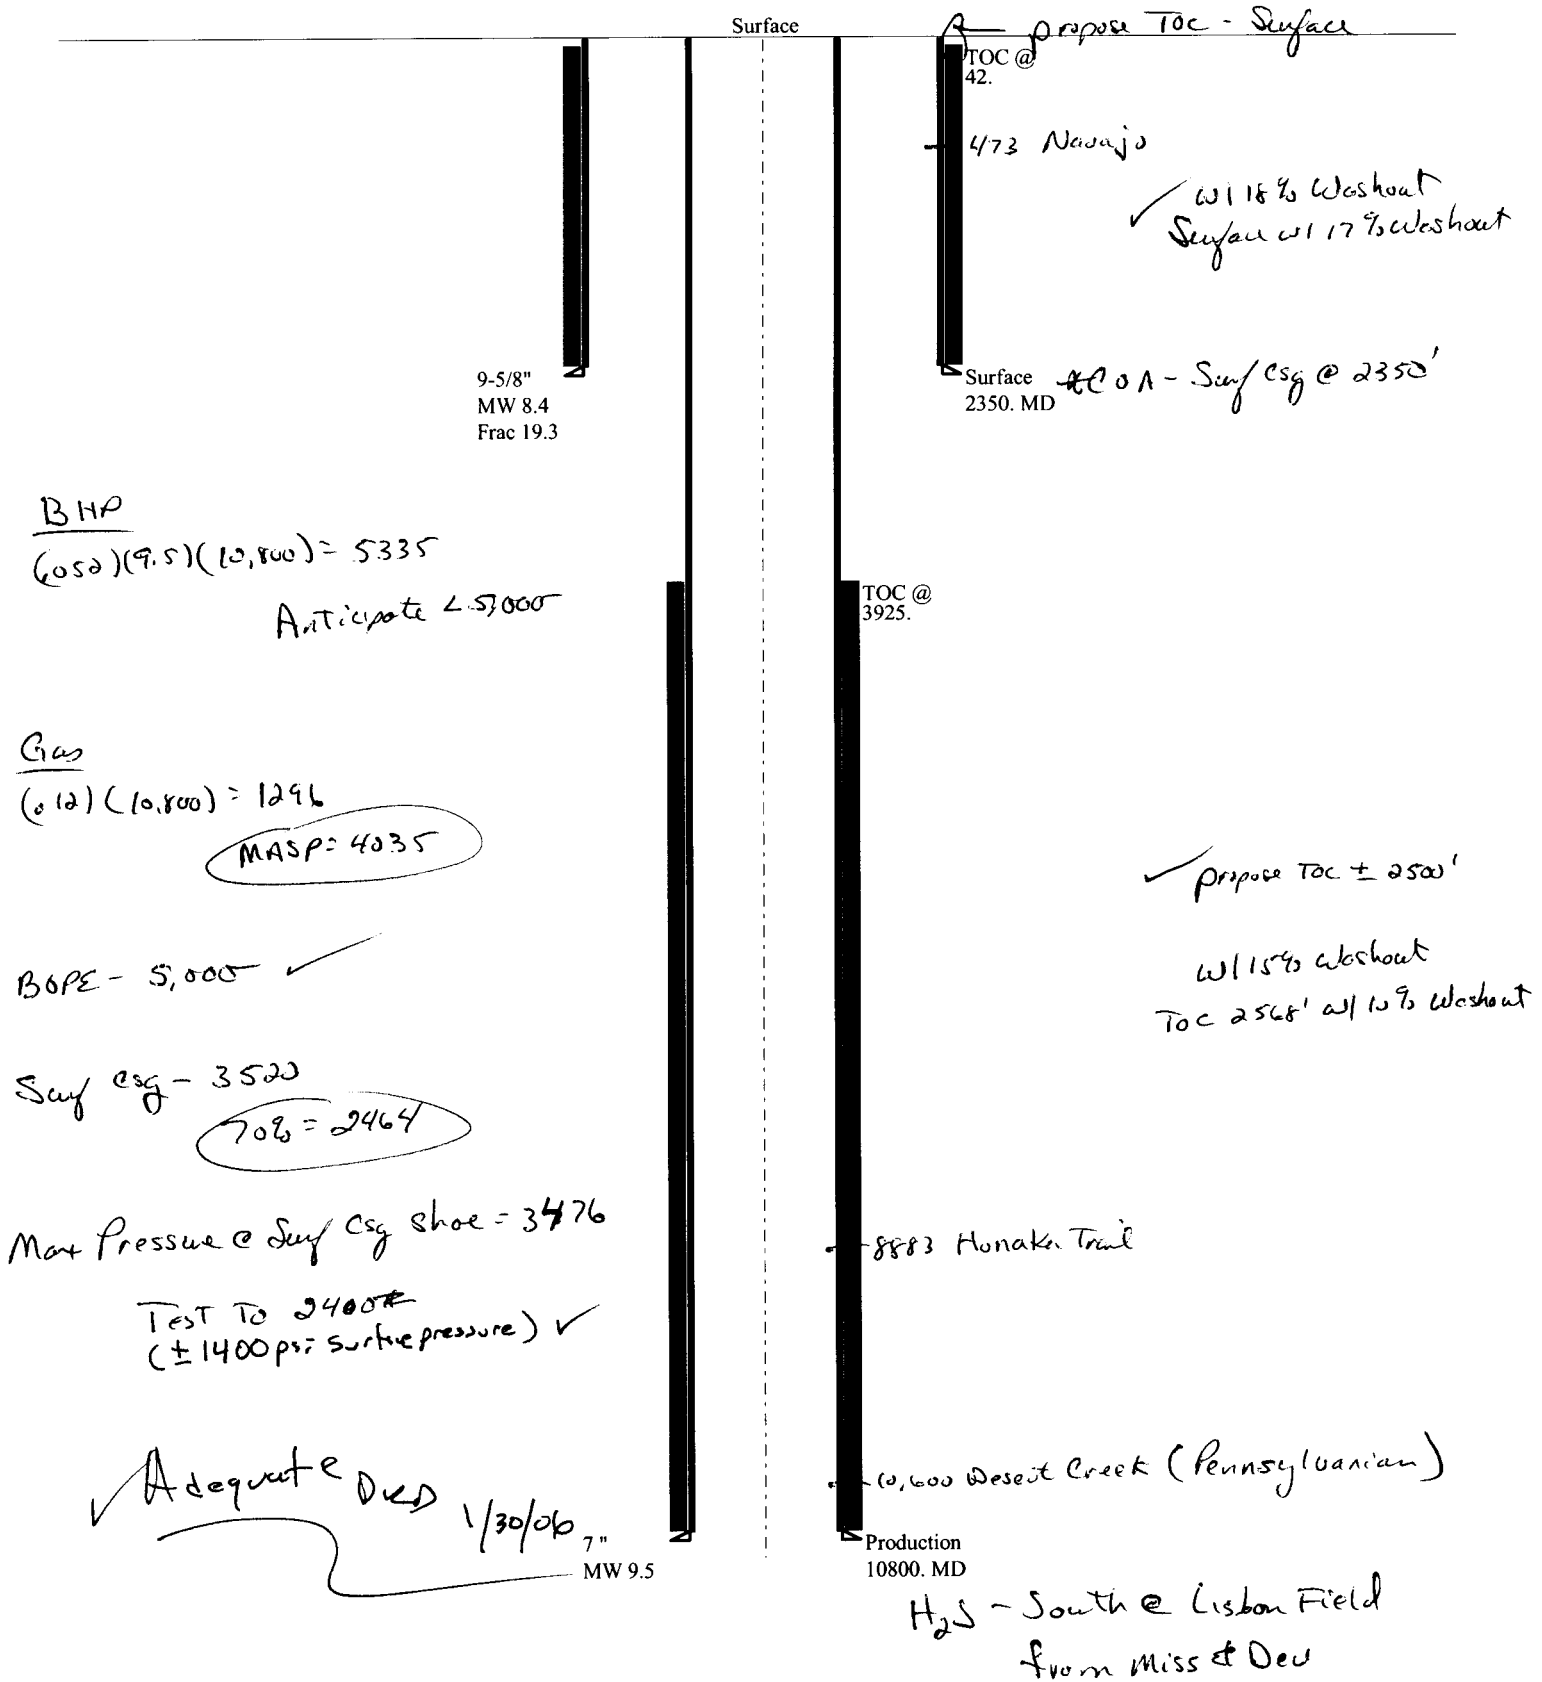 Surface
propose TOC - Surface
TOC @
42.
473 Navajo
✓ w/ 18% Washout
Surface w/ 17% Washout
9-5/8"
MW 8.4
Frac 19.3
Surface
2350. MD
COA - Surf Csg @ 2350'
BHP
(.052)(9.5)(10,800) = 5335
Anticipate < 5,000
TOC @
3925.
Gas
(.12)(10,800) = 1296
MASP = 4035
✓ propose TOC ± 2500'
w/ 15% Washout
TOC 2568' w/ 10% Washout
BOPE - 5,000 ✓
Surf csg - 3520
70% = 2464
Max Pressure @ Surf Csg Shoe = 3476
8883 Honaker Trail
Test To 2400#
(± 1400 psi surface pressure) ✓
✓ Adequate DKD 1/30/06
10,600 Desert Creek (Pennsylvanian)
7"
MW 9.5
Production
10800. MD
H2S - South @ Lisbon Field
from Miss & Dev